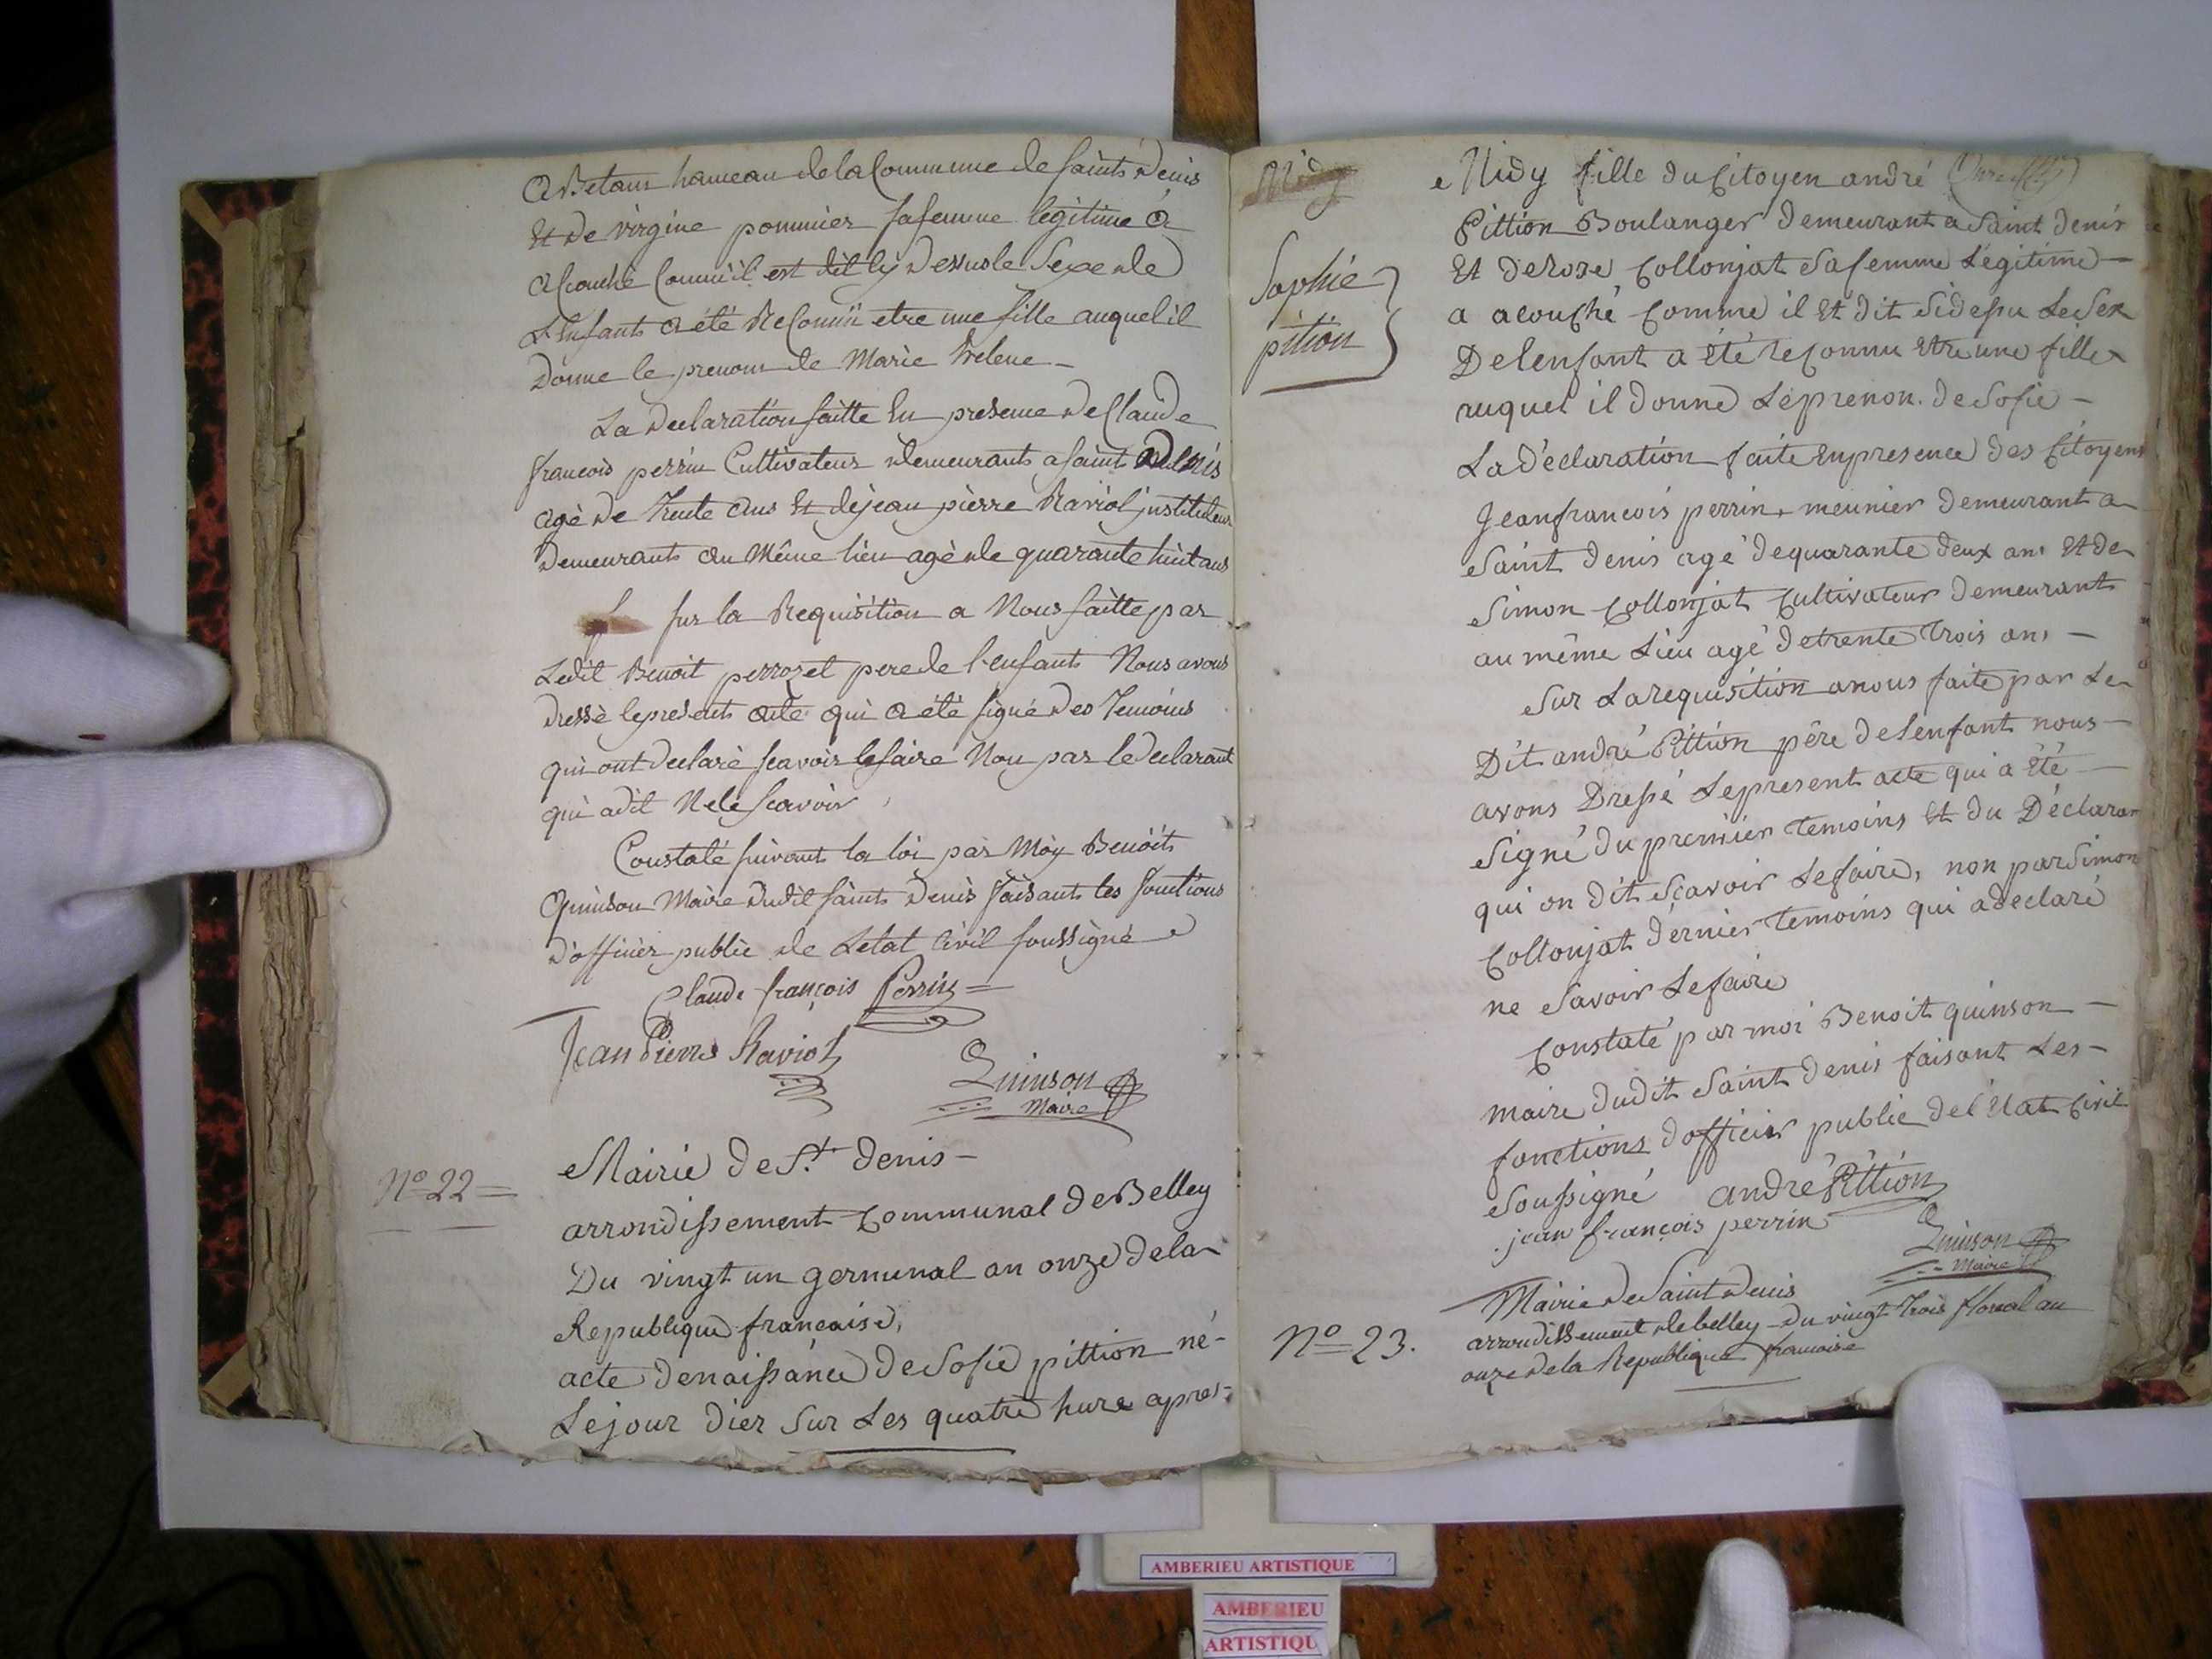 a Betans hameau de la Commune de saints Denis
Et de virgine pommier sa femme legitime a
acouché Comme il est dit cy Dessus le Sexe de
L'Enfants a été ReConnü etre une fille auquel il
Donne le prenom de Marie helene -
La Declaration faitte En presence de Claude
francois perrin Cultivateur demeurants a saint Denis
agé de trente ans Et de jean pierre Raviol instituteur
Demeurants au Même lieu agé de quarante huit ans
sur la Requisition a Nous faitte par
Ledit Benoit perrozet pere de l'enfants Nous avons
dressé le presents acte qui a été signé des Temoins
qui ont declaré scavoir le faire Non par le declarant
qui a dit Ne le scavoir
Constaté suivant la loi par Moy Benoits
Quinson Maire dudit saints Denis faisant les fonctions
d'officier public de Letat Civil soussigné
Claude françois Perrin
Jean Pierre Raviol
Quinson
Maire
N° 22 =
Mairie de St. denis -
arrondissement Communal de Belley
Du vingt un germinal an onze de la
Republique francaise,
acte denaissance de Sofie pittion né -
Le jour dier sur Les quatre hure apres -
Midy
Sophie
pition
Midy fille du Citoyen andré
Pittion Boulanger demeurant a Saint denis
Et de Roze Collonjat sa femme Légitime -
a acouché Comme il Et dit Sidessu Le Sex
De lenfant a été reconnu Etre une fille
auquel il donne Le prenon de Sofie -
La déclaration faite Enpresence des Citoyens
Jeanfrancois perrin, meunier demeurant a
Saint denis agé de quarante deux ans Et de
Simon Collonjat Cultivateur demeurant
au même Lieu agé de trente trois ans -
Sur La requisition a nous faite par Le
Dit andré Pittion pêre de lenfant nous -
avons Dressé Le present acte qui a été -
Signé du premier temoins Et du Déclaran
qui on dit Scavoir Le faire, non par Simon
Collonjat dernier temoins qui a declaré
ne Savoir Le faire
Constaté par moi Benoit quinson -
maire dudit Saint denis faisant Les -
fonctions d'officier public de l'Etat Civil
Soussigné andré Pittion
jean françois perrin
Quinson
Maire
N° 23.
Mairie de Saint Denis
arrondissement de belley - Du vingt trois floreal an
onze de la Republique francaise
AMBERIEU ARTISTIQUE
AMBERIEU
ARTISTIQU